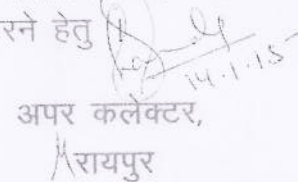 रने हेतु
14.1.15
अपर कलेक्टर,
रायपुर